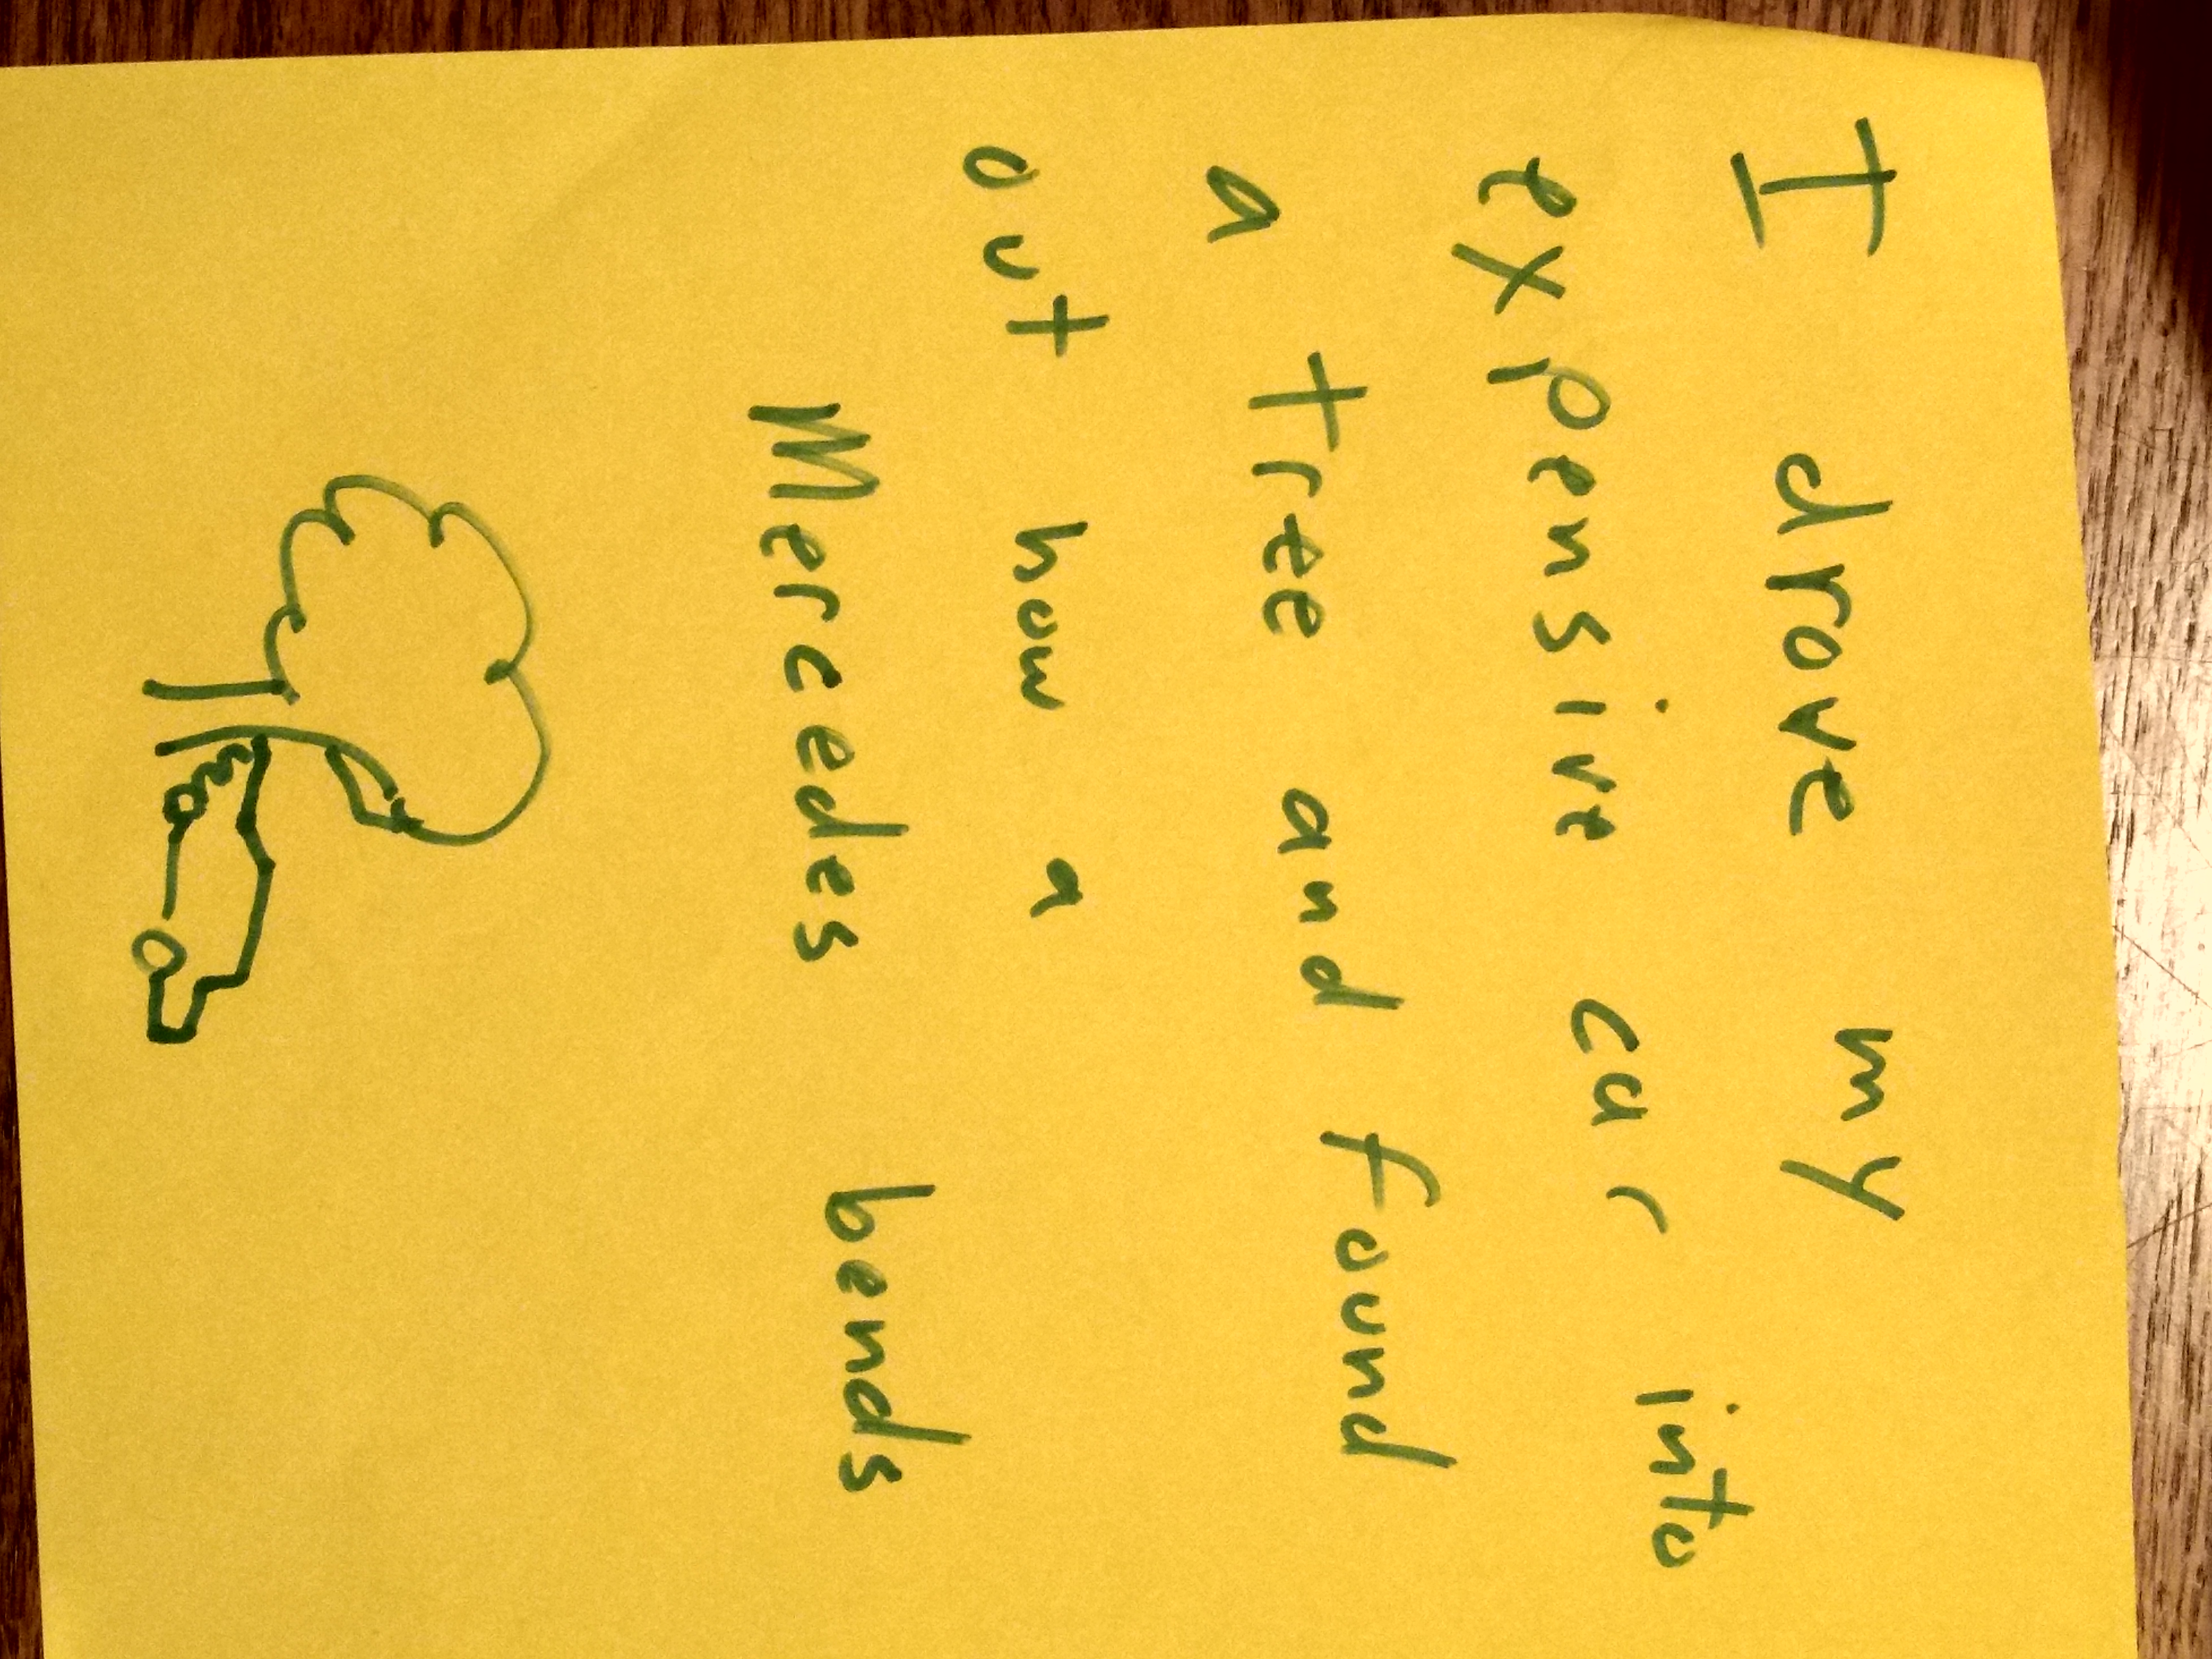 I drove my
expensive car into
a tree and found
out how a
Mercedes bends